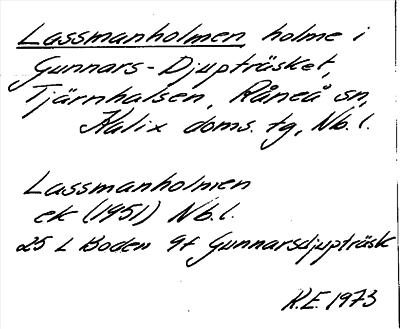 Lassmanholmen, holme i
Gunnars-Djupträsket,
Tjärnhalsen, Råneå sn,
Kalix doms. tg, Nb. l.
Lassmanholmen
ek (1951) Nb.l.
25 L Boden 9f Gunnarsdjupträsk
R.E. 1973